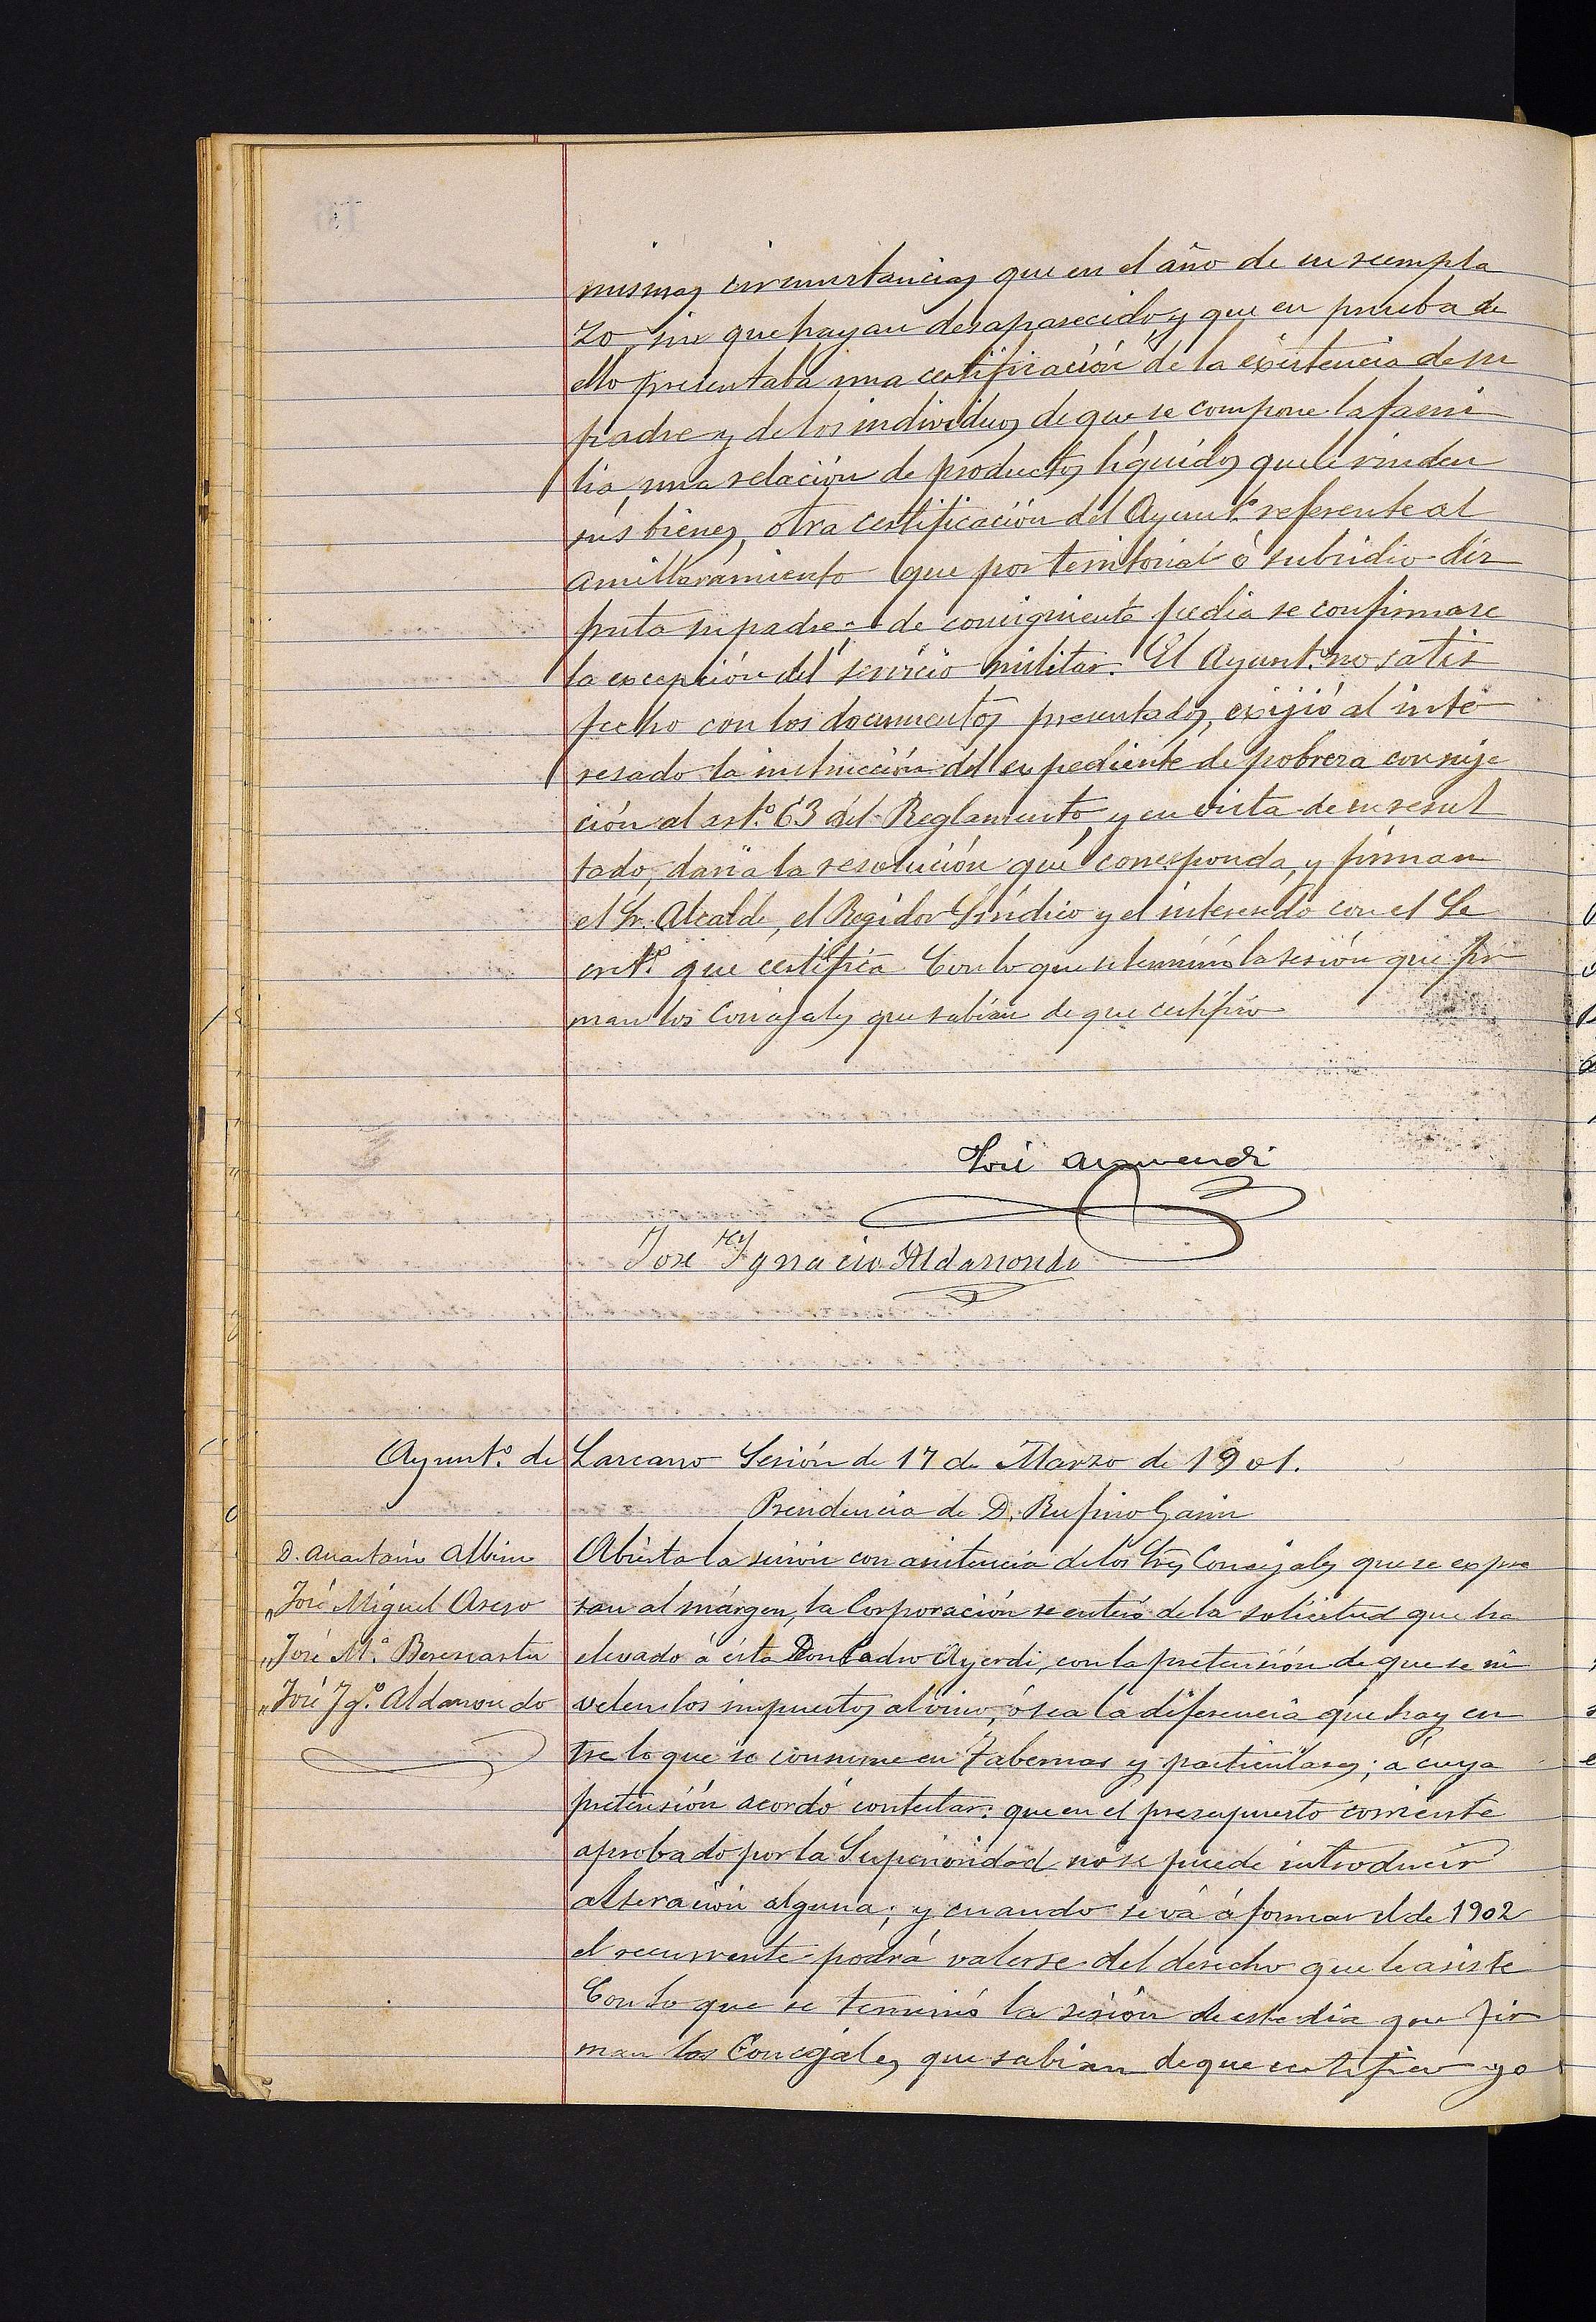 mismas circunstancias que en el año de su reempla
zo, sin que hayan desaparecido y que en prueba de
ello presentaba una certificación de la existencia de su
padre y de los individuos de que se compone la fami
lia, una relación de productos líquidos que le rinden
sus bienes, otra certificación del Ayunt.º referente al
amillaramiento que por territorial ó subsidio dis
fruta su padre: de consiguiente pedia se confirmase
la excepción del servicio militar. El Ayunt.º no satis
fecho con los documentos presentados, exijió al inte
resado la instrucción del expediente de pobreza con suje
ción al art.º 63 del Reglamento, y en vista de su resul
tado, daria la resolución que corresponda, y firman
el Sr. Alcalde, el Regidor Sindico y el interesado con el Se
cret.º que certifica. Con lo que se terminó la sesión que fir
man los Concejales que sabian de que certifico
José
José Ygnacio Aldasoro
Ayunt.º de Lazcano Sesión de 17 de Marzo de 1901.
Presidencia de D. Rufino Garin
D. Anastasio Albisu
„ José Miguel
„ José M.ª Berasiartu
„ José Ig.º
Abierta la sesión con asistencia de los Sres Concejales que se expre
san al márgen, la Corporación se enteró de la solicitud que ha
elevado á ésta Don Pedro Ayerdi, con la pretensión de que se ni
velen los impuestos al vino, ó sea la diferencia que hay en
tre lo que se consume en Tabernas y particulares; a cuya
pretensión acordó contestar: que en el presupuesto corriente
aprobado por la Superioridad no se puede introducir
alteración alguna; y cuando se vá á formar el de 1902
el recurrente podrá valerse del derecho que le asiste
Con lo que se terminó la sesión de este dia que fir
man los Concejales que sabian de que certifico yo